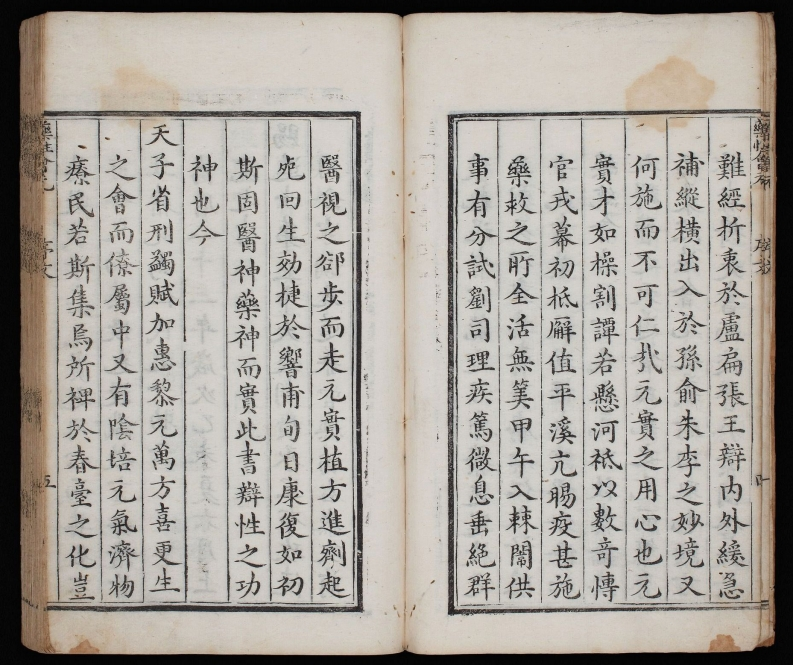 難經折衷於盧扁張王辯内外緩急
補縱橫出入於孫俞朱李之妙境又
何施而不可仁㦲元實之用心也元
實才如操割譚若懸河祗以數竒慱
官戎幕初抵廨值平溪亢暘疫甚施
藥救之所全活無筭甲午入棘闈供
事有分試劉司理疾篤微息垂絶群
醫視之郤步而走元實植方進劑起
死回生効捷於響甫旬日康復如初
斯固醫神藥神而實此書辯性之功
神也今
天子省刑蠲賦加惠黎元萬方喜更生
之會而僚屬中又有陰培元氣濟物
療民若斯集焉所裨於春臺之化豈
序文
五